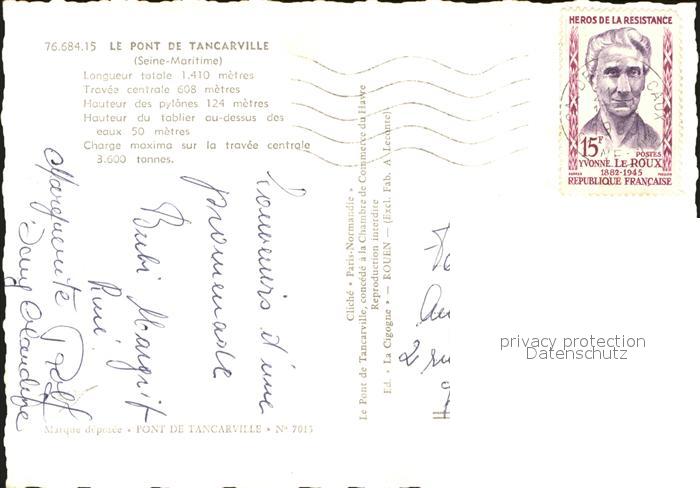 76.684.15 LE PONT DE TANCARVILLE
(Seine-Maritime)
Longueur totale 1.410 mètres
Travée centrale 608 mètres
Hauteur des pylônes 124 mètres
Hauteur du tablier au-dessus des
eaux 50 mètres
Charge maxima sur la travée centrale
3.600 tonnes.
Souvenirs d'une
promenade
Bubi Margrit
Marguerite Rolf
Cliché • Paris-Normandie •
Le Pont de Tancarville, concédé à la Chambre de Commerce du Havre
Reproduction interdite
Ed. • La Cigogne • — ROUEN — (Excl. Fab. A Leconte)
2 ru
HEROS DE LA RESISTANCE
15F
POSTES
YVONNE LE ROUX
1882-1945
REPUBLIQUE FRANÇAISE
CAUX
privacy protection
Datenschutz
Marque déposée • PONT DE TANCARVILLE • No 7015